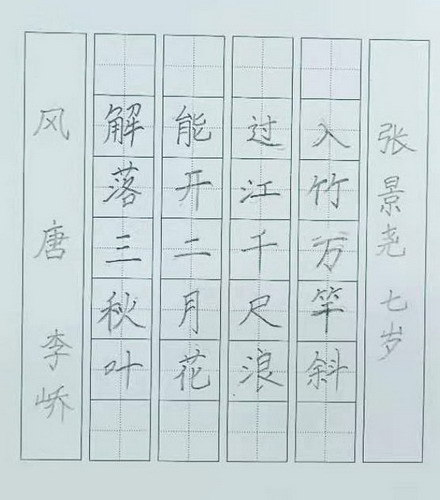 风 唐 李峤
解落三秋叶
能开二月花
过江千尺浪
入竹万竿斜
张景尧 七岁